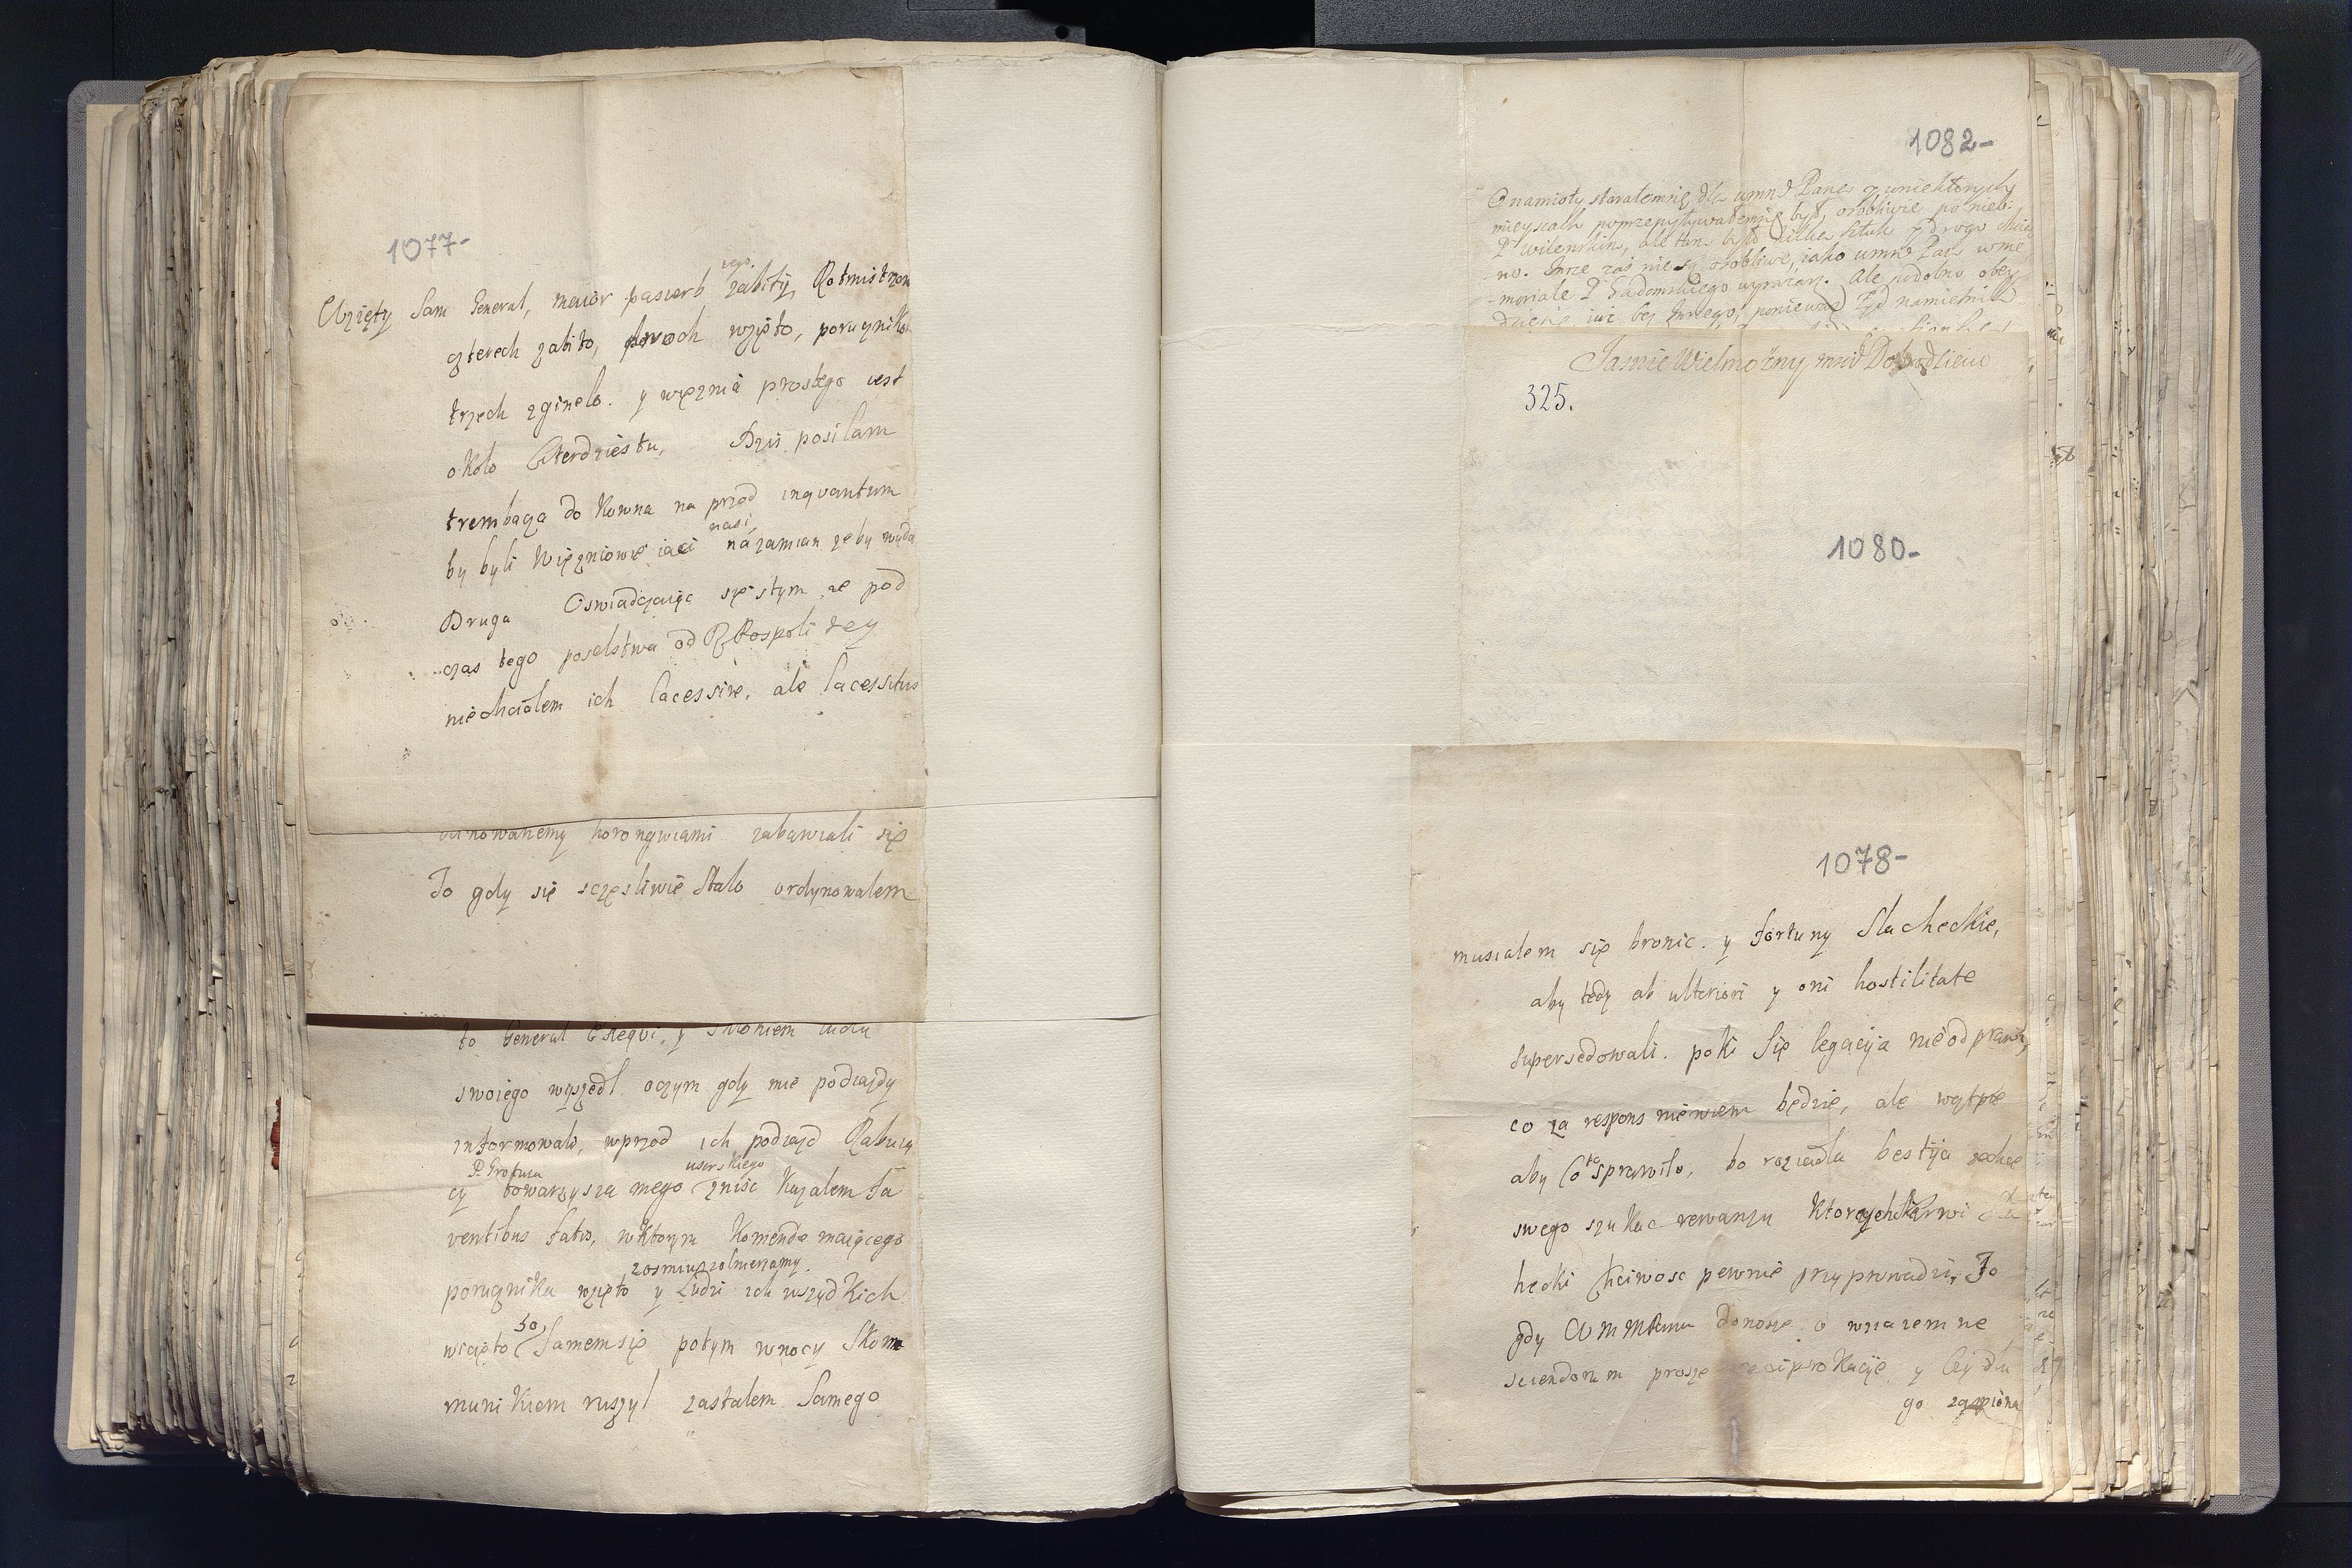 1077-
Wzięty Sam General, maior pasierb iego zabity, Rotmistrzow
czterech zabito, dwoch wzięto, porucznikow
trzech zgineło. y więznia prostego iest
około Czterdziestu, Dziś posiłam
trembacza do Kowna na przod inquantum
by byli Więzniowie iaci nasi, na zamian zeby wyda
Druga Oswiadczaiąc się stym ze pod
czas tego poselstwa od Rzkospolitey
niechciałem ich lacessire, ale lacessitus
horongwiami zabawiali się
To gdy się sczęsliwie Stalo ordynowalem
to General y Skoniem
swoiego wyszedl oczym gdy mie podiazdy
informowali, wprzod ich podiazd Rabuią
cy P. Grotuza towarzysza mego usarskiego znisc Kazalem fa
ventibus fatis, wktorym Komendę maiącego
porucznika wzięto zosmiu zolnierzamy y Ludzi ich wszydkich
wcięto 50, Samem się potym wnocy Skom
munikiem ruszyl zastalem Samego
1082-
O namioty starałemsię dla wmm Pana z wniektorych
mieyscach poprzepytywałemsię był, osobliwie po nieb:
P wilenskim, ale tam było kilka sztuk z drogo chcia
no. Insze zaś nie są osobliwe, iako wmm Pan wme
-moriale P Sadowskiego wyrażasz. Ale podobno obey
dzie się iuż bez tego, ponieważ
Jasnie Wielmożny mnie Dobrodzieiu
325.
1080-
1078-
musiałem się bronic. y fortuny Slacheckie,
aby tedy ab ulteriori y oni hostilitate
supersedowali. poki Się legacyia nieodprawi,
co za respons niewiem będzie, ale wątpie
aby Co to sprawiło, bo roziadla bestyia zechce
swego szukac rewanzu Ktorych Krwi Sla
hecki Chciwosc pewnie przyprowadzi, To
gdy Wmmemu donosze o wzaiemne
sciendorum prosze reciprokacyię y
go